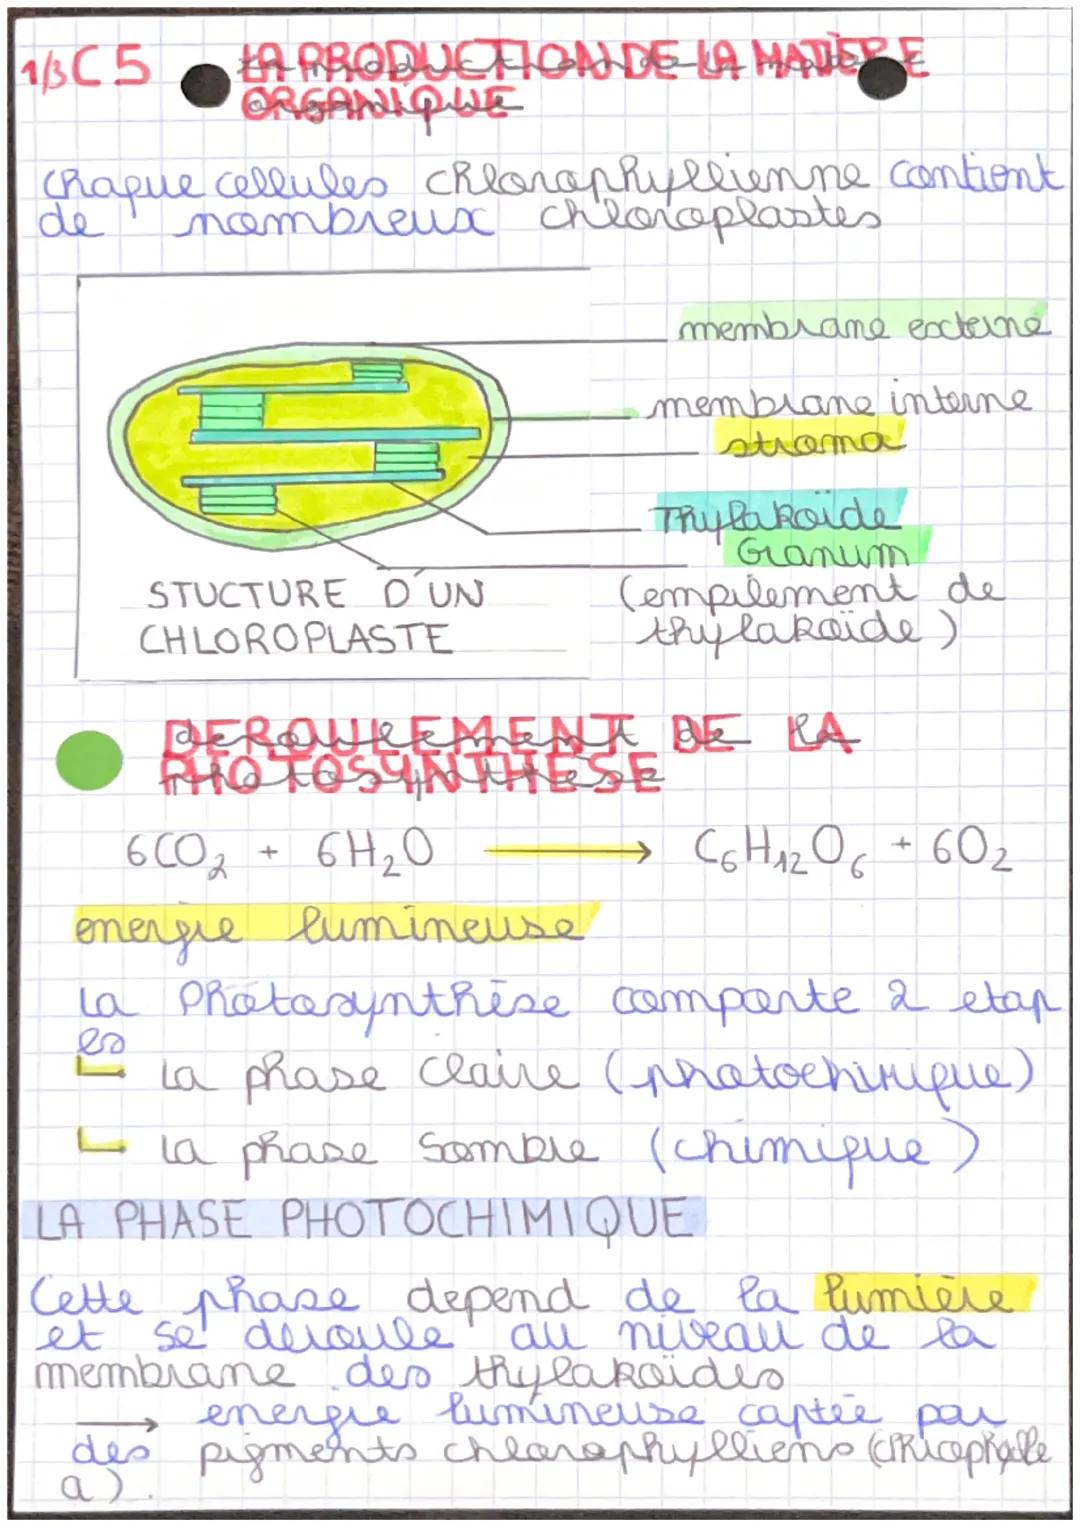 1/3 C5 LA PRODUCTION DE LA MATIÈRE
ORGANIQUE
Chaque cellules chlorophyllienne contient
de nombreux chloroplastes
membrane externe
membrane interne
stroma
Thylakoïde
Granum
(empilement de
thylakoïde)
STUCTURE D'UN
CHLOROPLASTE
DEROULEMENT DE LA
PHOTOSYNTHÈSE
6CO₂ + 6H₂O → C₆H₁₂O₆ + 6O₂
energie lumineuse
La Photosynthèse comporte 2 etap
es
La phase claire (photochimique)
La phase sombre (chimique)
LA PHASE PHOTOCHIMIQUE
Cette phase depend de la lumière
et se deroule au niveau de la
membrane des thylakoïdes
→ energie lumineuse captée par
des pigments chlorophylliens (chlorophylle
a).